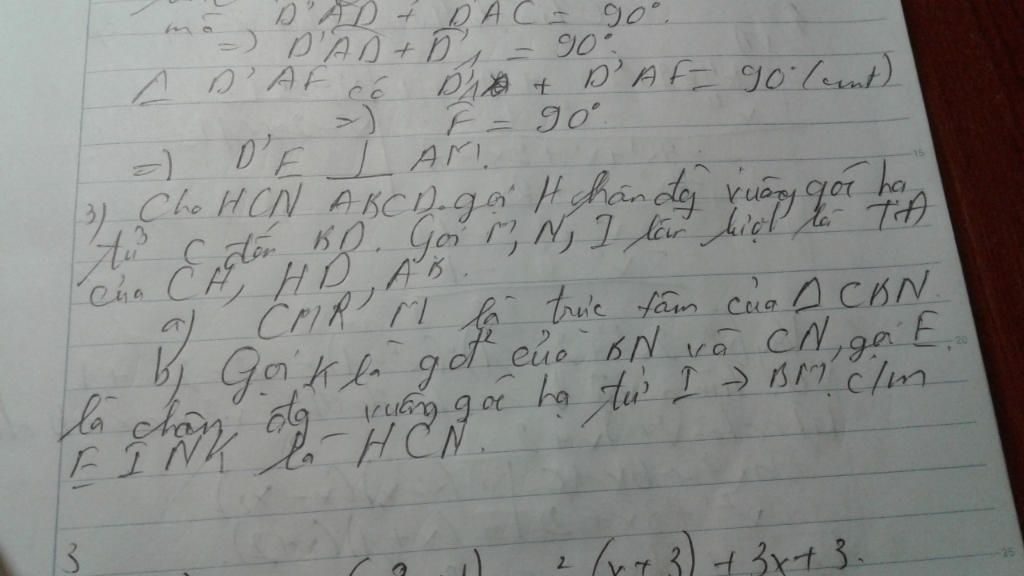 mà D'AD + D'AC = 90°.
=) D'AD + D'1 = 90°.
Δ D'AF có D'1 + D'AF = 90° (cmt)
=) F = 90°
=) D'F ⊥ AM.
3) Cho HCN ABCD. gọi H chân đg vuông góc hạ
từ C đến BD. Gọi M, N, I lần lượt là TĐ
của CH, HD, AB.
a) CMR M là trực tâm của Δ CBN.
b) Gọi K là gđ của BN và CN, gọi E.
là chân đg vuông góc hạ từ I → BM. c/m
E I N K là HCN.
3
2 (x+3) + 3x + 3.